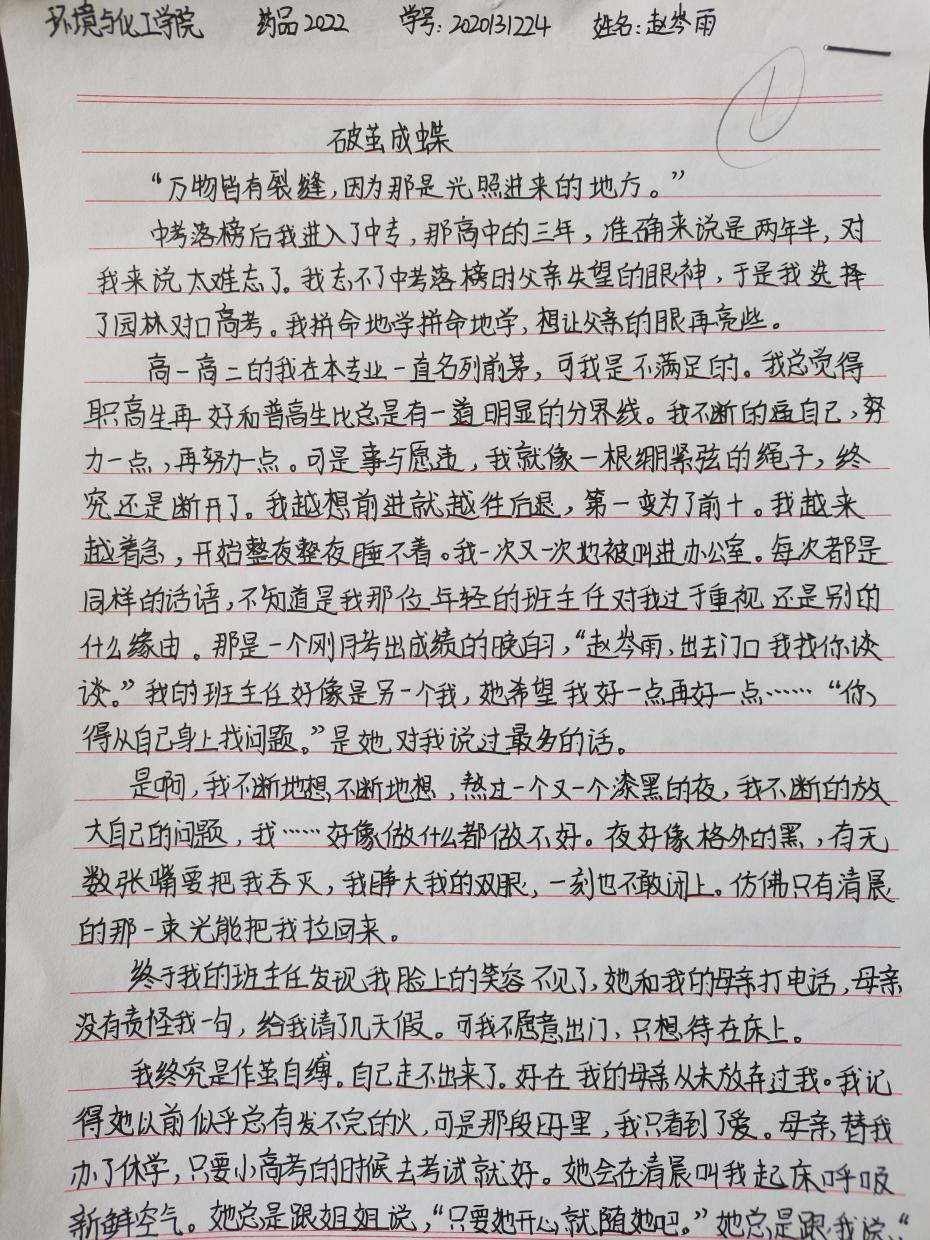 环境与化工学院 药品2022 学号:2020131224 姓名:赵岑雨
破茧成蝶
“万物皆有裂缝,因为那是光照进来的地方。”
中考落榜后我进入了中专,那高中的三年,准确来说是两年半,对
我来说太难忘了。我忘不了中考落榜时父亲失望的眼神,于是我选择
了园林对口高考。我拼命地学拼命地学,想让父亲的眼再亮些。
高一高二的我在本专业一直名列前茅,可我是不满足的。我总觉得
职高生再好和普高生比总是有一道明显的分界线。我不断的逼自己,努
力一点,再努力一点。可是事与愿违,我就像一根绷紧弦的绳子,终
究还是断开了。我越想前进就越往后退,第一变为了前十。我越来
越着急,开始整夜整夜睡不着。我一次又一次地被叫进办公室。每次都是
同样的话语,不知道是我那位年轻的班主任对我过于重视还是别的
什么缘由。那是一个刚月考出成绩的晚自习,“赵岑雨,出去门口我找你谈
谈。”我的班主任好像是另一个我,她希望我好一点再好一点……“你
得从自己身上找问题。”是她对我说过最多的话。
是啊,我不断地想,不断地想,熬过一个又一个漆黑的夜,我不断的放
大自己的问题,我……好像做什么都做不好。夜好像格外的黑,有无
数张嘴要把我吞灭,我睁大我的双眼,一刻也不敢闭上。仿佛只有清晨
的那一束光能把我拉回来。
终于我的班主任发现我脸上的笑容不见了,她和我的母亲打电话,母亲
没有责怪我一句,给我请了几天假。可我不愿意出门,只想待在床上。
我终究是作茧自缚。自己走不出来了。好在我的母亲从未放弃过我。我记
得她以前似乎总有发不完的火,可是那段日子里,我只看到了爱。母亲替我
办了休学,只要小高考的时候去考试就好。她会在清晨叫我起床呼吸
新鲜空气。她总是跟姐姐说,“只要她开心就随她吧。”她总是跟我说,“